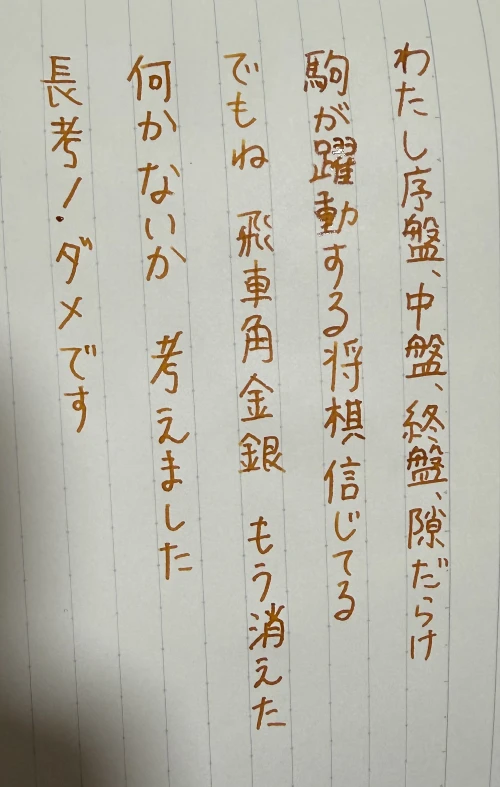 わたし序盤、中盤、終盤、隙だらけ
駒が躍動する将棋信じてる
でもね　飛車角金銀　もう消えた
何かないか　考えました
長考！ダメです